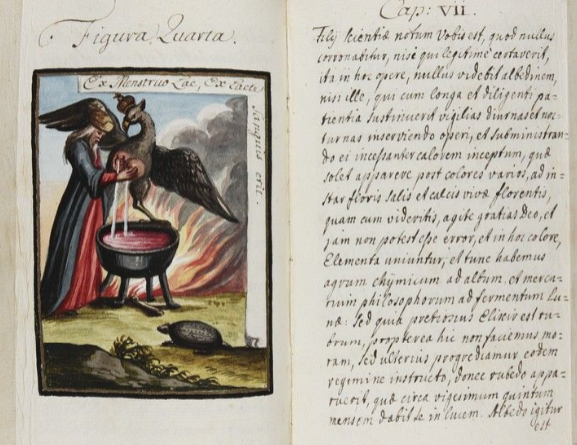 Figura Quarta.
Ex Menstruo Lac, Ex Lacte
Sanguis erit.
Cap: VII.
Filij scientiæ notum vobis est, quod nullus
coronabitur, nisi qui legitimè certaverit,
ita in hoc opere, nullus videbit albedinem,
nisi ille, qui cum longa et diligenti pa-
tientia sustinuerit vigilias diurnas et noc-
turnas inserviendo operi, et subministran-
do ei incessanter calorem inceptum, quæ
solet apparere post colores varios, ad in-
star floris salis et calcis vivæ florentis,
quam cum videritis, agite gratias Deo, et
jam non potest esse error, et in hoc colore,
Elementa uniuntur, et tunc habemus
agrum chÿmicum ad album, et mercu-
rium philosophorum ad fermentum lu-
næ: Sed quia pretiosius Elixir est ru-
brum, propterea hic non faciemus mo-
ram, sed ulterius progrediamur eodem
regimine instructo, donec rubedo appa-
ruerit, quæ circa vigesimum quintum
mensem dabit se in lucem. Albedo igitur
est